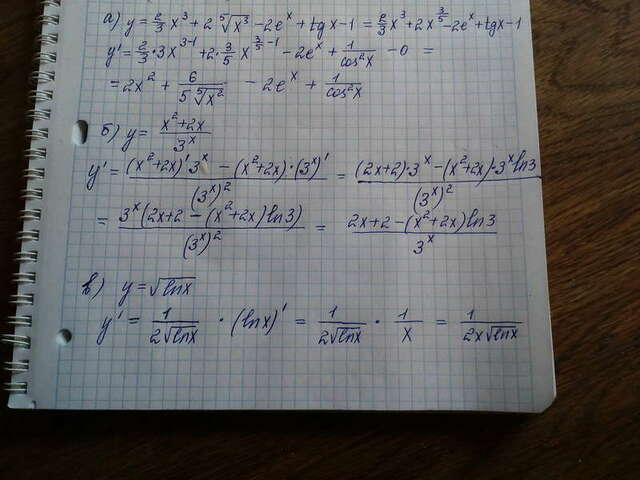 а) y = 2/3 x³ + 2 ⁵√x³ - 2eˣ + tg x - 1 = 2/3 x³ + 2x^(3/5) - 2eˣ + tg x - 1
y' = 2/3 · 3x^(3-1) + 2 · 3/5 x^(3/5 - 1) - 2eˣ + 1/cos²x - 0 =
= 2x² + 6/(5 ⁵√x²) - 2eˣ + 1/cos²x
б) y = (x² + 2x)/3ˣ
y' = ((x² + 2x)' 3ˣ - (x² + 2x) · (3ˣ)')/(3ˣ)² = ((2x + 2) · 3ˣ - (x² + 2x) · 3ˣ ln3)/(3ˣ)²
= 3ˣ(2x + 2 - (x² + 2x) ln3)/(3ˣ)² = (2x + 2 - (x² + 2x) ln3)/3ˣ
в) y = √lnx
y' = 1/(2√lnx) · (lnx)' = 1/(2√lnx) · 1/x = 1/(2x√lnx)